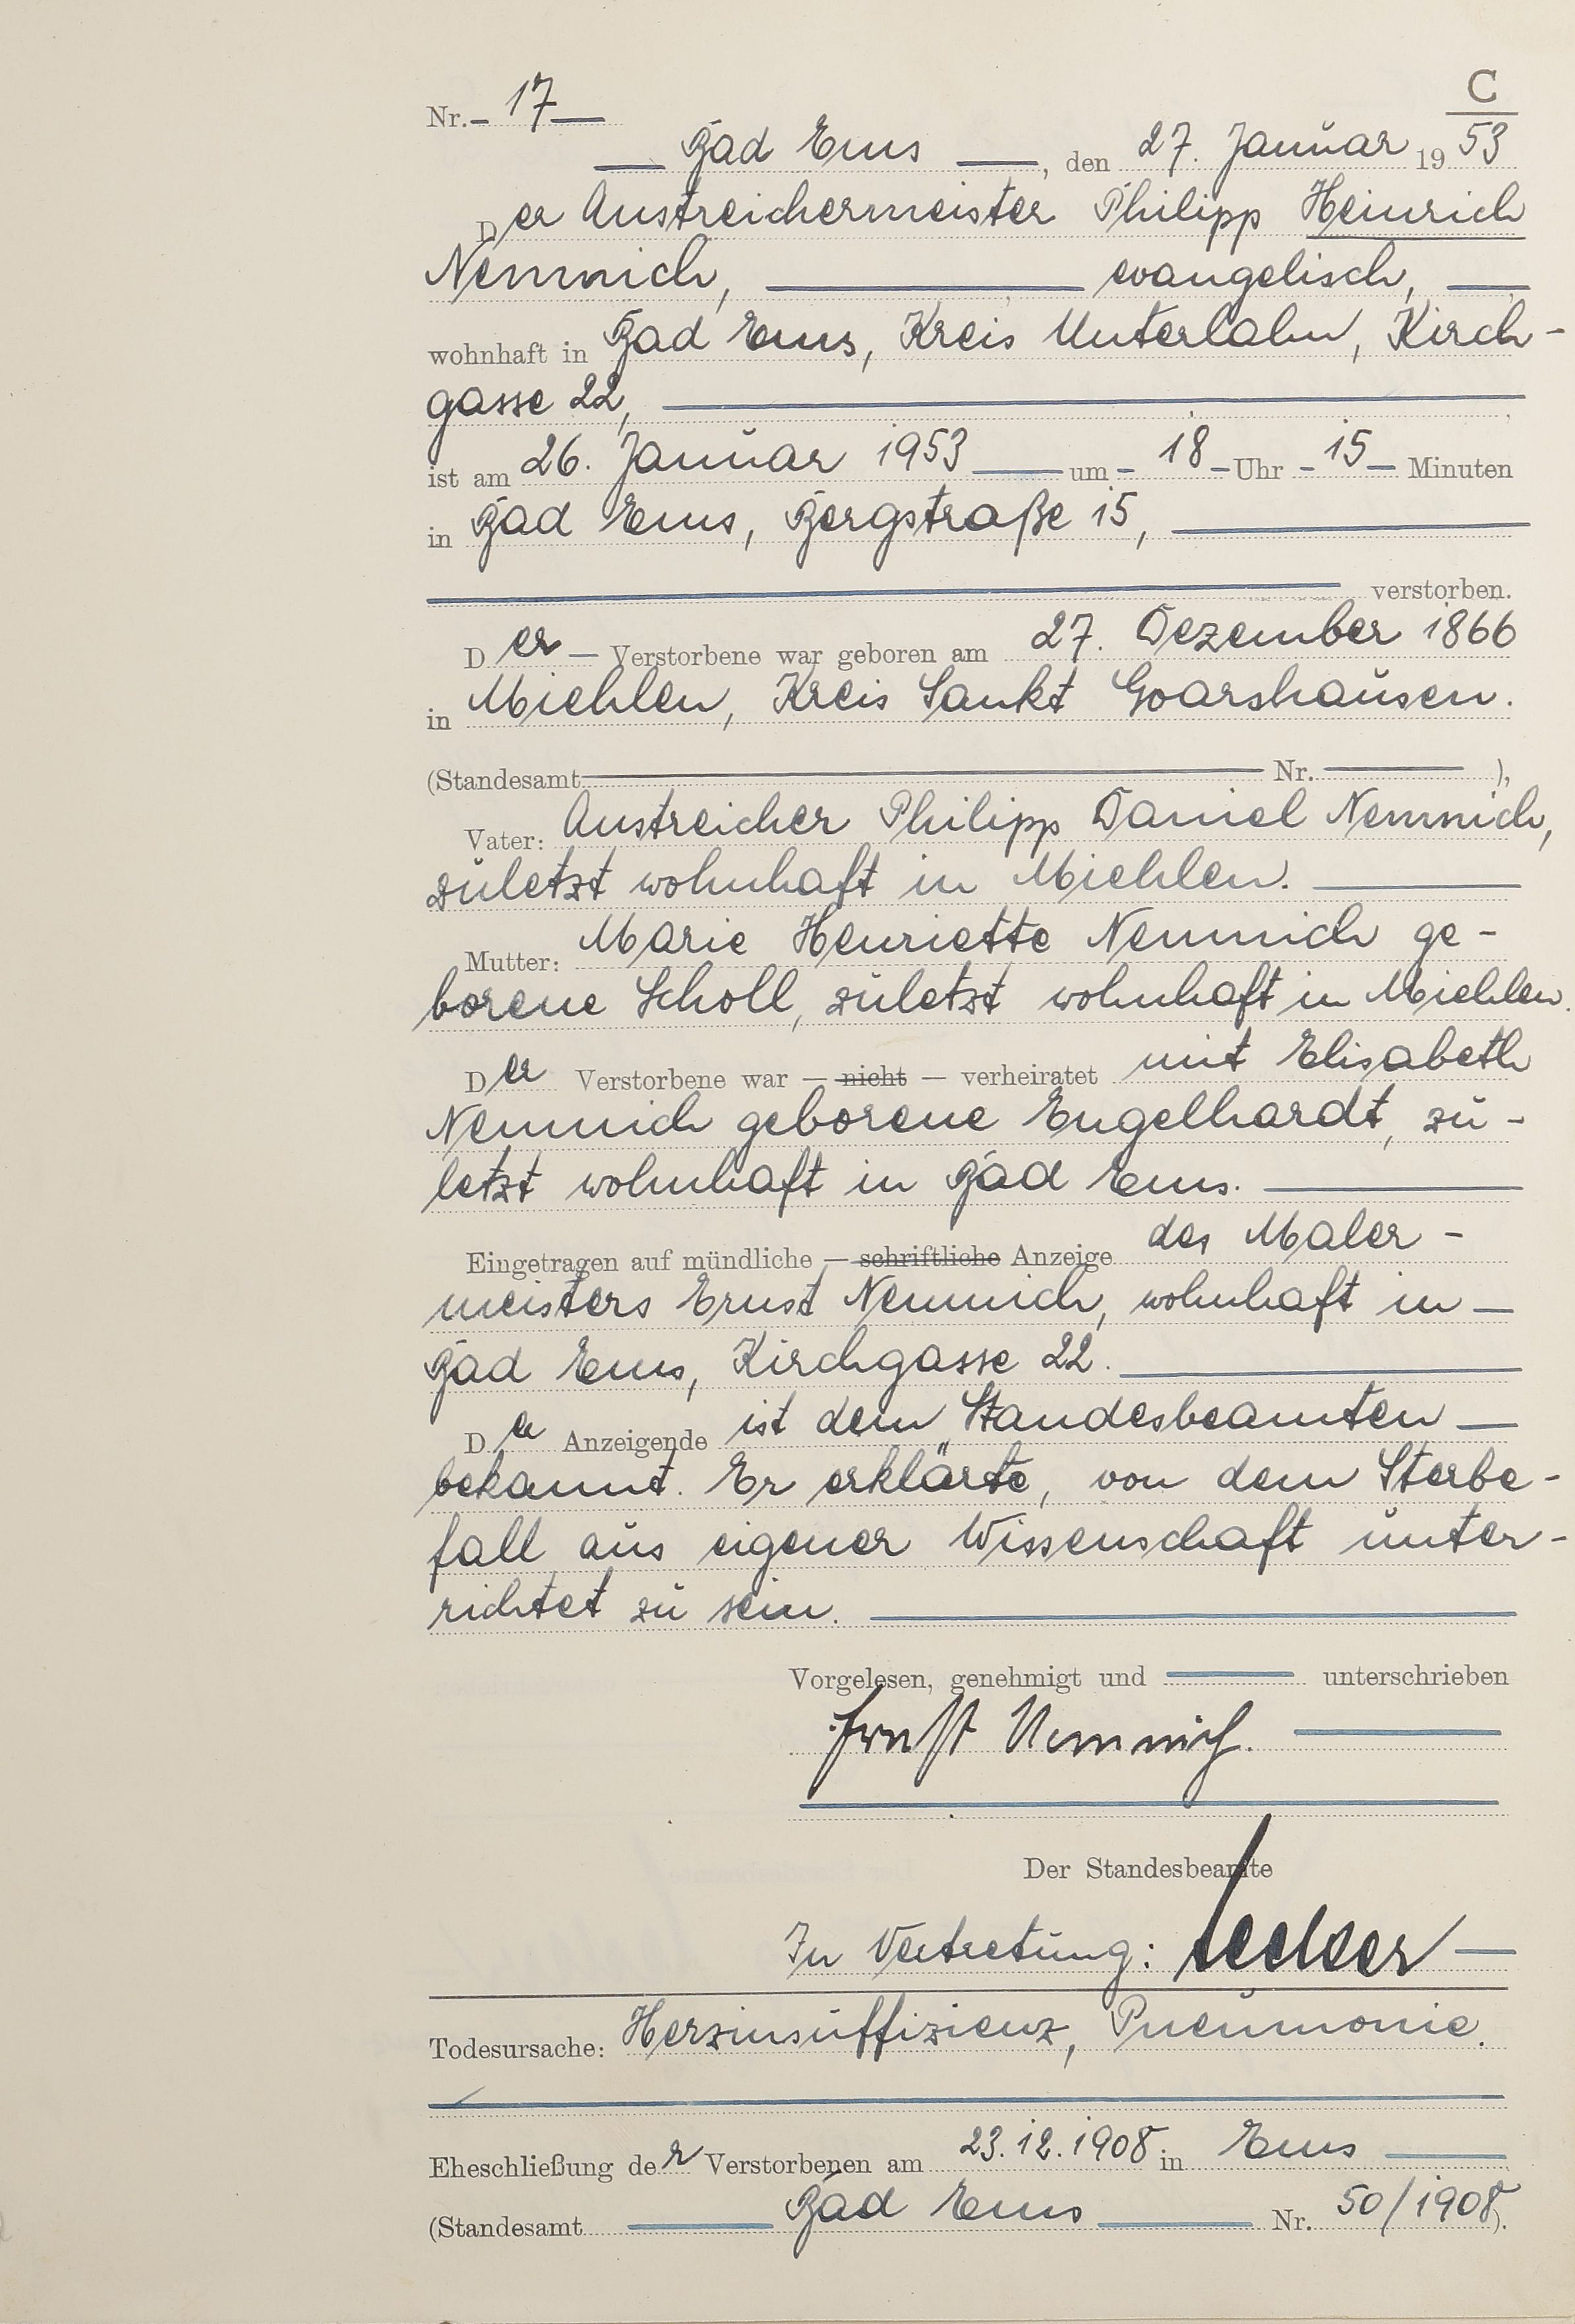 C
Nr. 17
Bad Ems, den 27. Januar 1953
Der Anstreichermeister Philipp Heinrich
Nemnich, evangelisch,
wohnhaft in Bad Ems, Kreis Unterlahn, Kirch-
gasse 22,
ist am 26. Januar 1953 um 18 Uhr 15 Minuten
in Bad Ems, Bergstraße 15,
verstorben.
Der Verstorbene war geboren am 27. Dezember 1866
in Miehlen, Kreis Sankt Goarshausen.
(Standesamt Nr. ),
Vater: Anstreicher Philipp Daniel Nemnich,
zuletzt wohnhaft in Miehlen.
Mutter: Marie Henriette Nemnich ge-
borene Scholl, zuletzt wohnhaft in Miehlen.
Der Verstorbene war — nicht — verheiratet mit Elisabeth
Nemnich geborene Engelhardt, zu-
letzt wohnhaft in Bad Ems.
Eingetragen auf mündliche — schriftliche Anzeige des Maler-
meisters Ernst Nemnich, wohnhaft in
Bad Ems, Kirchgasse 22.
Der Anzeigende ist dem Standesbeamten
bekannt. Er erklärte, von dem Sterbe-
fall aus eigener Wissenschaft unter-
richtet zu sein.
Vorgelesen, genehmigt und unterschrieben
Ernst Nemnich.
Der Standesbeamte
In Vertretung:
Todesursache: Herzinsuffizienz, Pneumonie.
Eheschließung der Verstorbenen am 23.12.1908 in Ems
(Standesamt Bad Ems Nr. 50/1908).